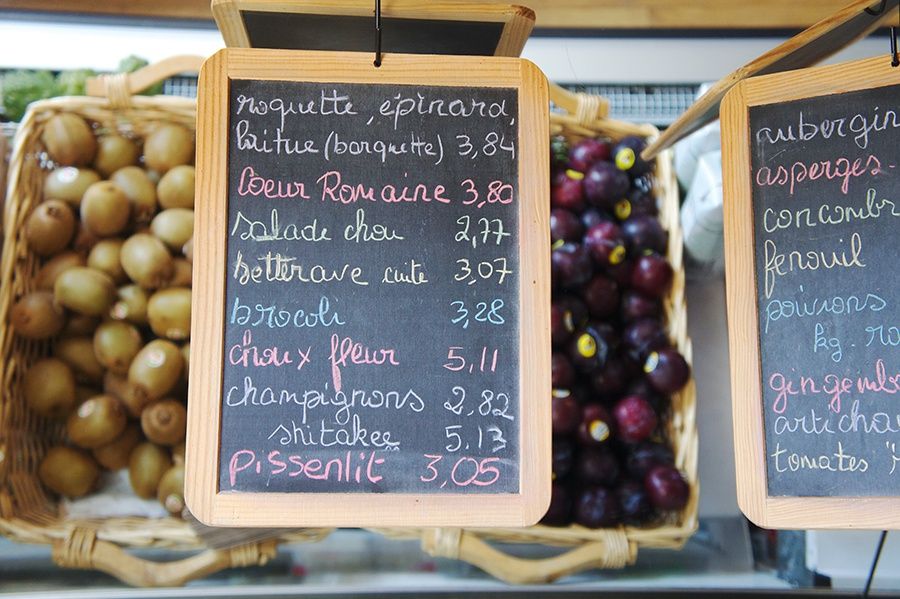 roquette, épinard,
laitue (barquette) 3,84
Coeur Romaine 3,80
salade chou 2,77
betterave cuite 3,07
brocoli 3,28
choux fleur 5,11
champignons 2,82
shitakee 5,13
pissenlit 3,05
aubergin
asperges-
concombr
fenouil
poivrons
kg. ro
gingemb
artichau
tomates "